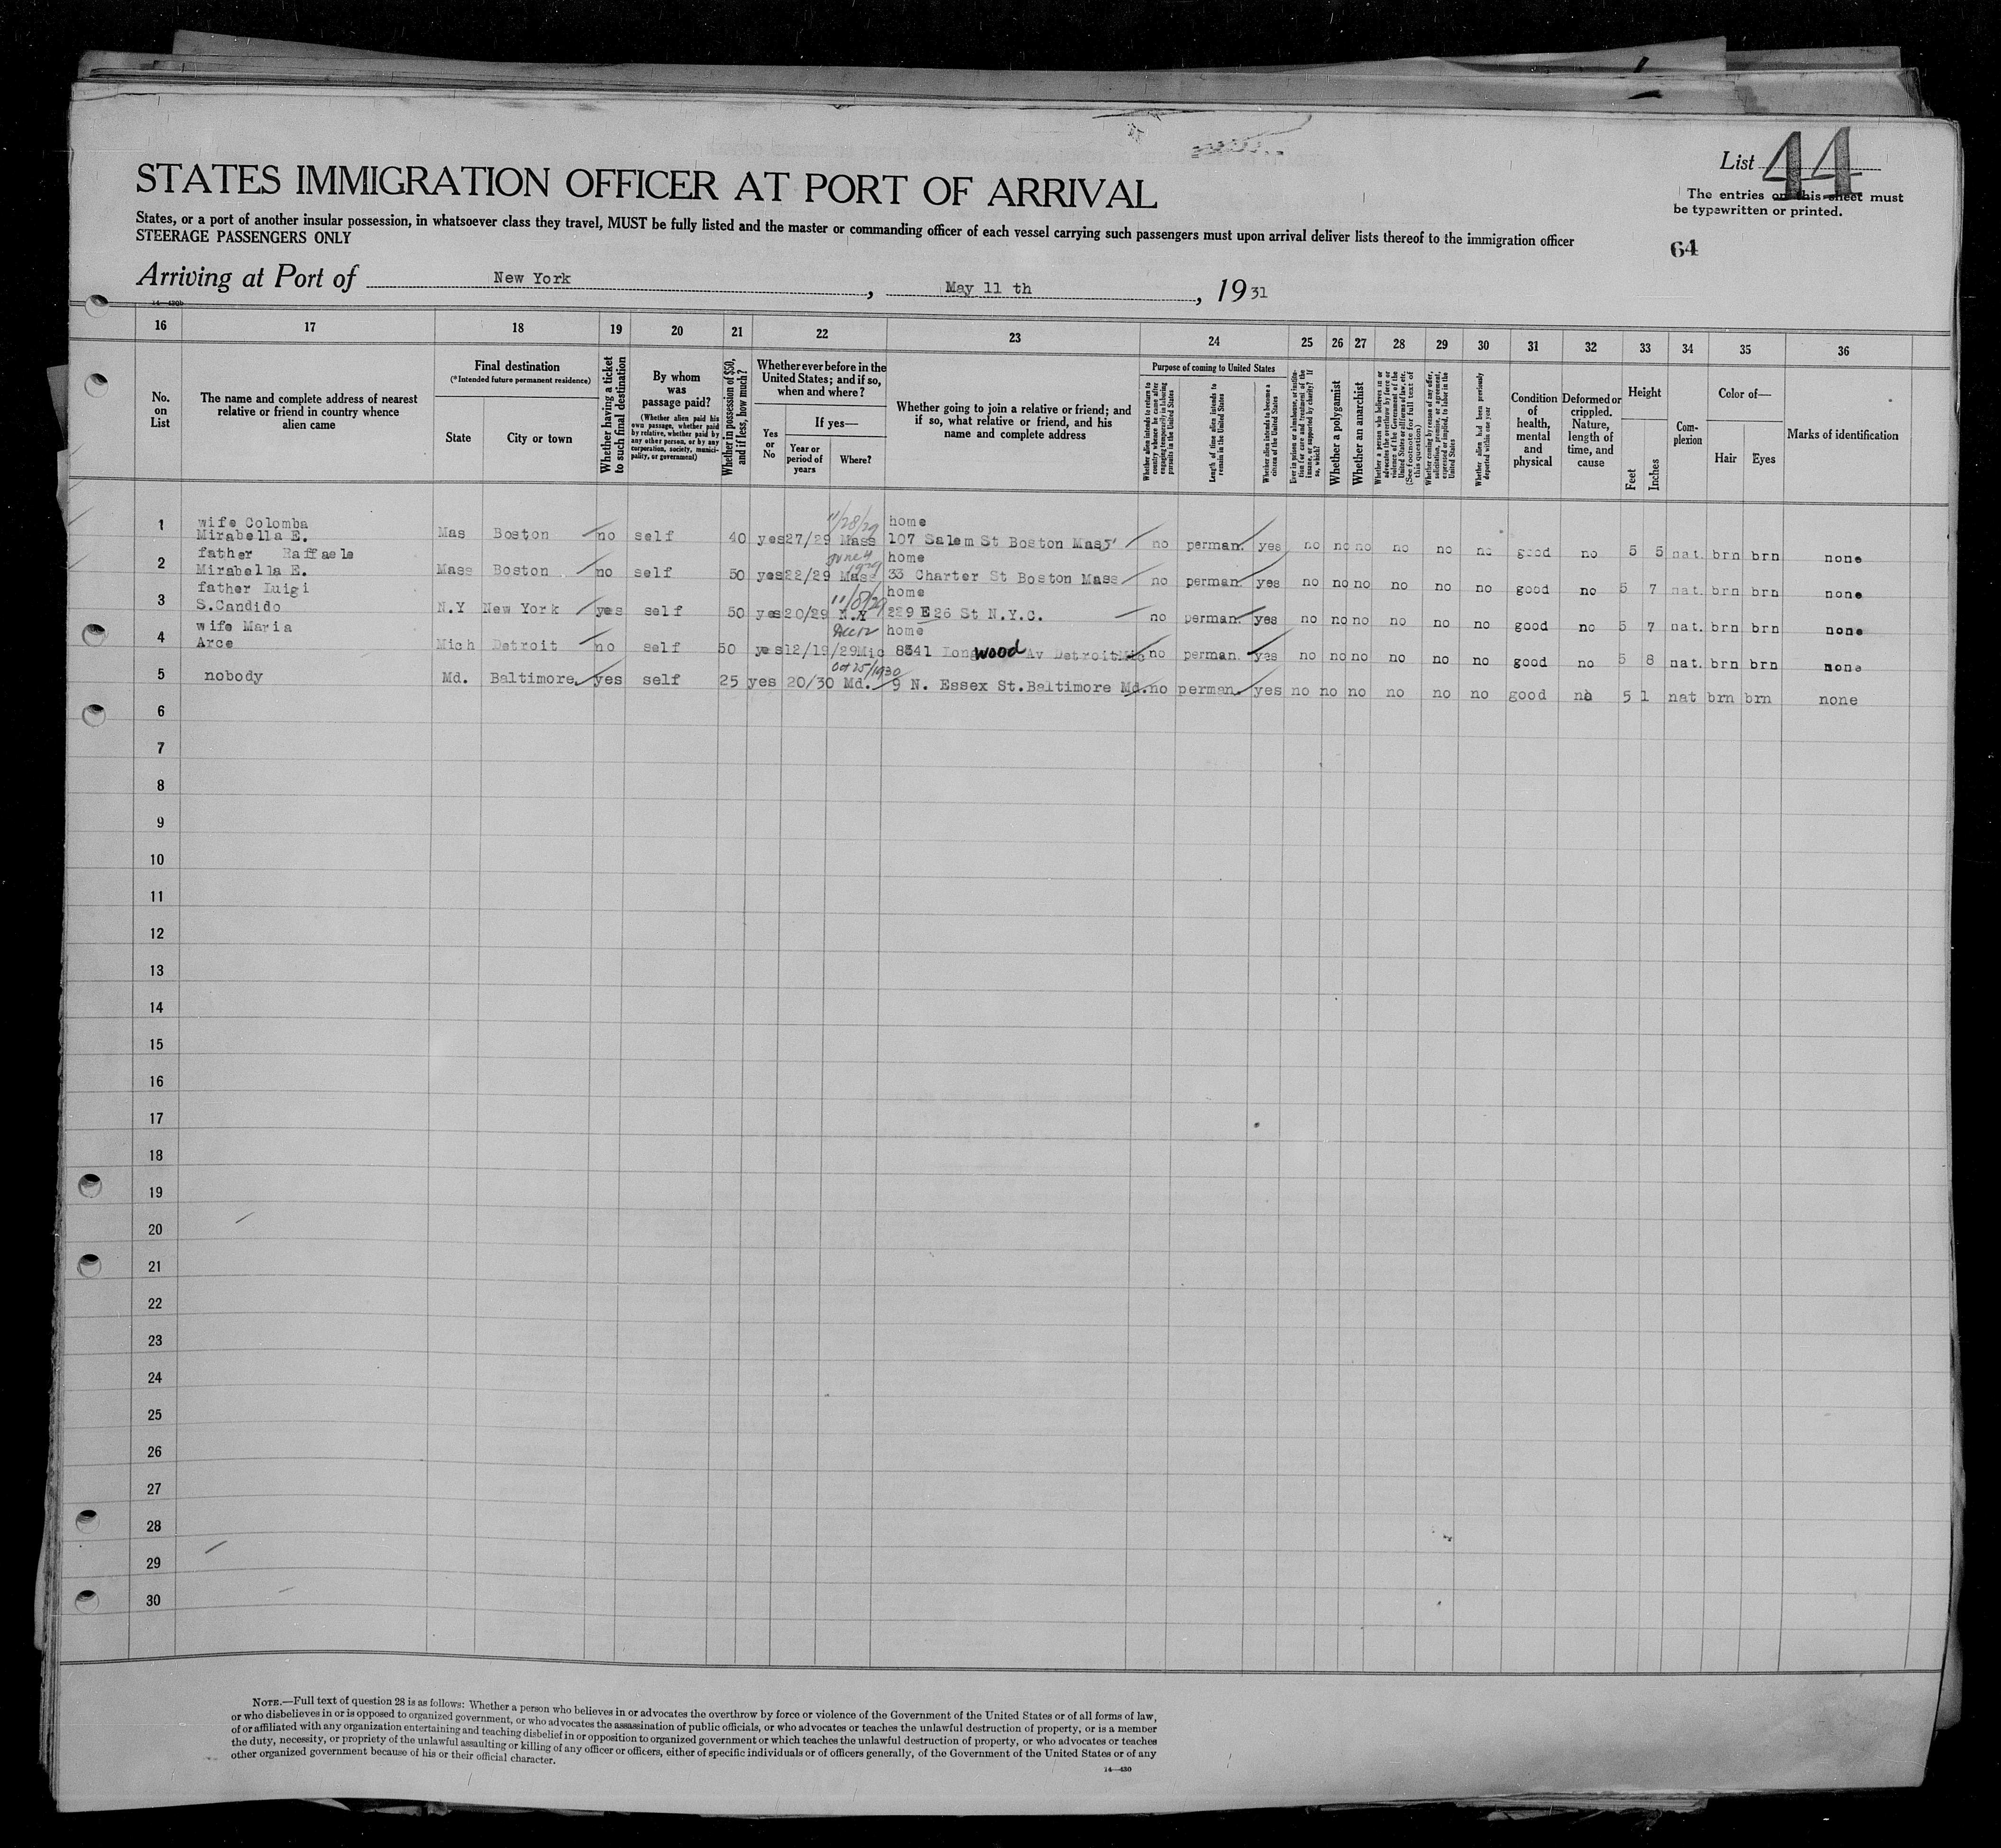 List 44
The entries on this sheet must
be typewritten or printed.
64
STATES IMMIGRATION OFFICER AT PORT OF ARRIVAL
States, or a port of another insular possession, in whatsoever class they travel, MUST be fully listed and the master or commanding officer of each vessel carrying such passengers must upon arrival deliver lists thereof to the immigration officer
STEERAGE PASSENGERS ONLY
Arriving at Port of New York, May 11 th, 1931
14—430b
16 17 18 19 20 21 22 23 24 25 26 27 28 29 30 31 32 33 34 35 36
No.
on
List
The name and complete address of nearest
relative or friend in country whence
alien came
Final destination
(*Intended future permanent residence)
State
City or town
Whether having a ticket
to such final destination
By whom
was
passage paid?
(Whether alien paid his
own passage, whether paid
by relative, whether paid by
any other person, or by any
corporation, society, munici-
pality, or government)
Whether in possession of $50,
and if less, how much?
Whether ever before in the
United States; and if so,
when and where?
Yes
or
No
If yes—
Year or
period of
years
Where?
Whether going to join a relative or friend; and
if so, what relative or friend, and his
name and complete address
Purpose of coming to United States
Whether alien intends to return to
country whence he came after
engaging temporarily in laboring
pursuits in the United States
Length of time alien intends to
remain in the United States
Whether alien intends to become a
citizen of the United States
Ever in prison or almshouse, or institu-
tion for care and treatment of the
insane, or supported by charity? If
so, which?
Whether a polygamist
Whether an anarchist
Whether a person who believes in or
advocates the overthrow by force or
violence of the Government of the
United States or all forms of law, etc.
(See footnote for full text of
this question)
Whether coming by reason of any offer,
solicitation, promise, or agreement,
expressed or implied, to labor in the
United States
Whether alien had been previously
deported within one year
Condition
of
health,
mental
and
physical
Deformed or
crippled.
Nature,
length of
time, and
cause
Height
Feet
Inches
Com-
plexion
Color of—
Hair
Eyes
Marks of identification
wife Colomba 11/28/29 home
1 Mirabella E. Mas Boston no self 40 yes 27/29 Mass 107 Salem St Boston Mas no perman. yes no no no no no no good no 5 5 nat. brn brn none
father Raffaele June 4 1929 home
2 Mirabella E. Mass Boston no self 50 yes 22/29 Mass 33 Charter St Boston Mass no perman yes no no no no no no good no 5 7 nat. brn brn none
father Luigi 11/8/29 home
3 S.Candido N.Y New York yes self 50 yes 20/29 N.Y 229 E 26 St N.Y.C. no perman. yes no no no no no no good no 5 7 nat. brn brn none
wife Maria Dec 12 home
4 Arce Mich Detroit no self 50 yes 12/19/29 Mic 8341 Longwood Av Detroit Mic no perman. yes no no no no no no good no 5 8 nat. brn brn none
Oct 25/1930
5 nobody Md. Baltimore yes self 25 yes 20/30 Md. 9 N. Essex St. Baltimore Md. no perman. yes no no no no no no good no 5 1 nat brn brn none
6
7
8
9
10
11
12
13
14
15
16
17
18
19
20
21
22
23
24
25
26
27
28
29
30
NOTE.—Full text of question 28 is as follows: Whether a person who believes in or advocates the overthrow by force or violence of the Government of the United States or of all forms of law,
or who disbelieves in or is opposed to organized government, or who advocates the assassination of public officials, or who advocates or teaches the unlawful destruction of property, or is a member
of or affiliated with any organization entertaining and teaching disbelief in or opposition to organized government or which teaches the unlawful destruction of property, or who advocates or teaches
the duty, necessity, or propriety of the unlawful assaulting or killing of any officer or officers, either of specific individuals or of officers generally, of the Government of the United States or of any
other organized government because of his or their official character.
14—430